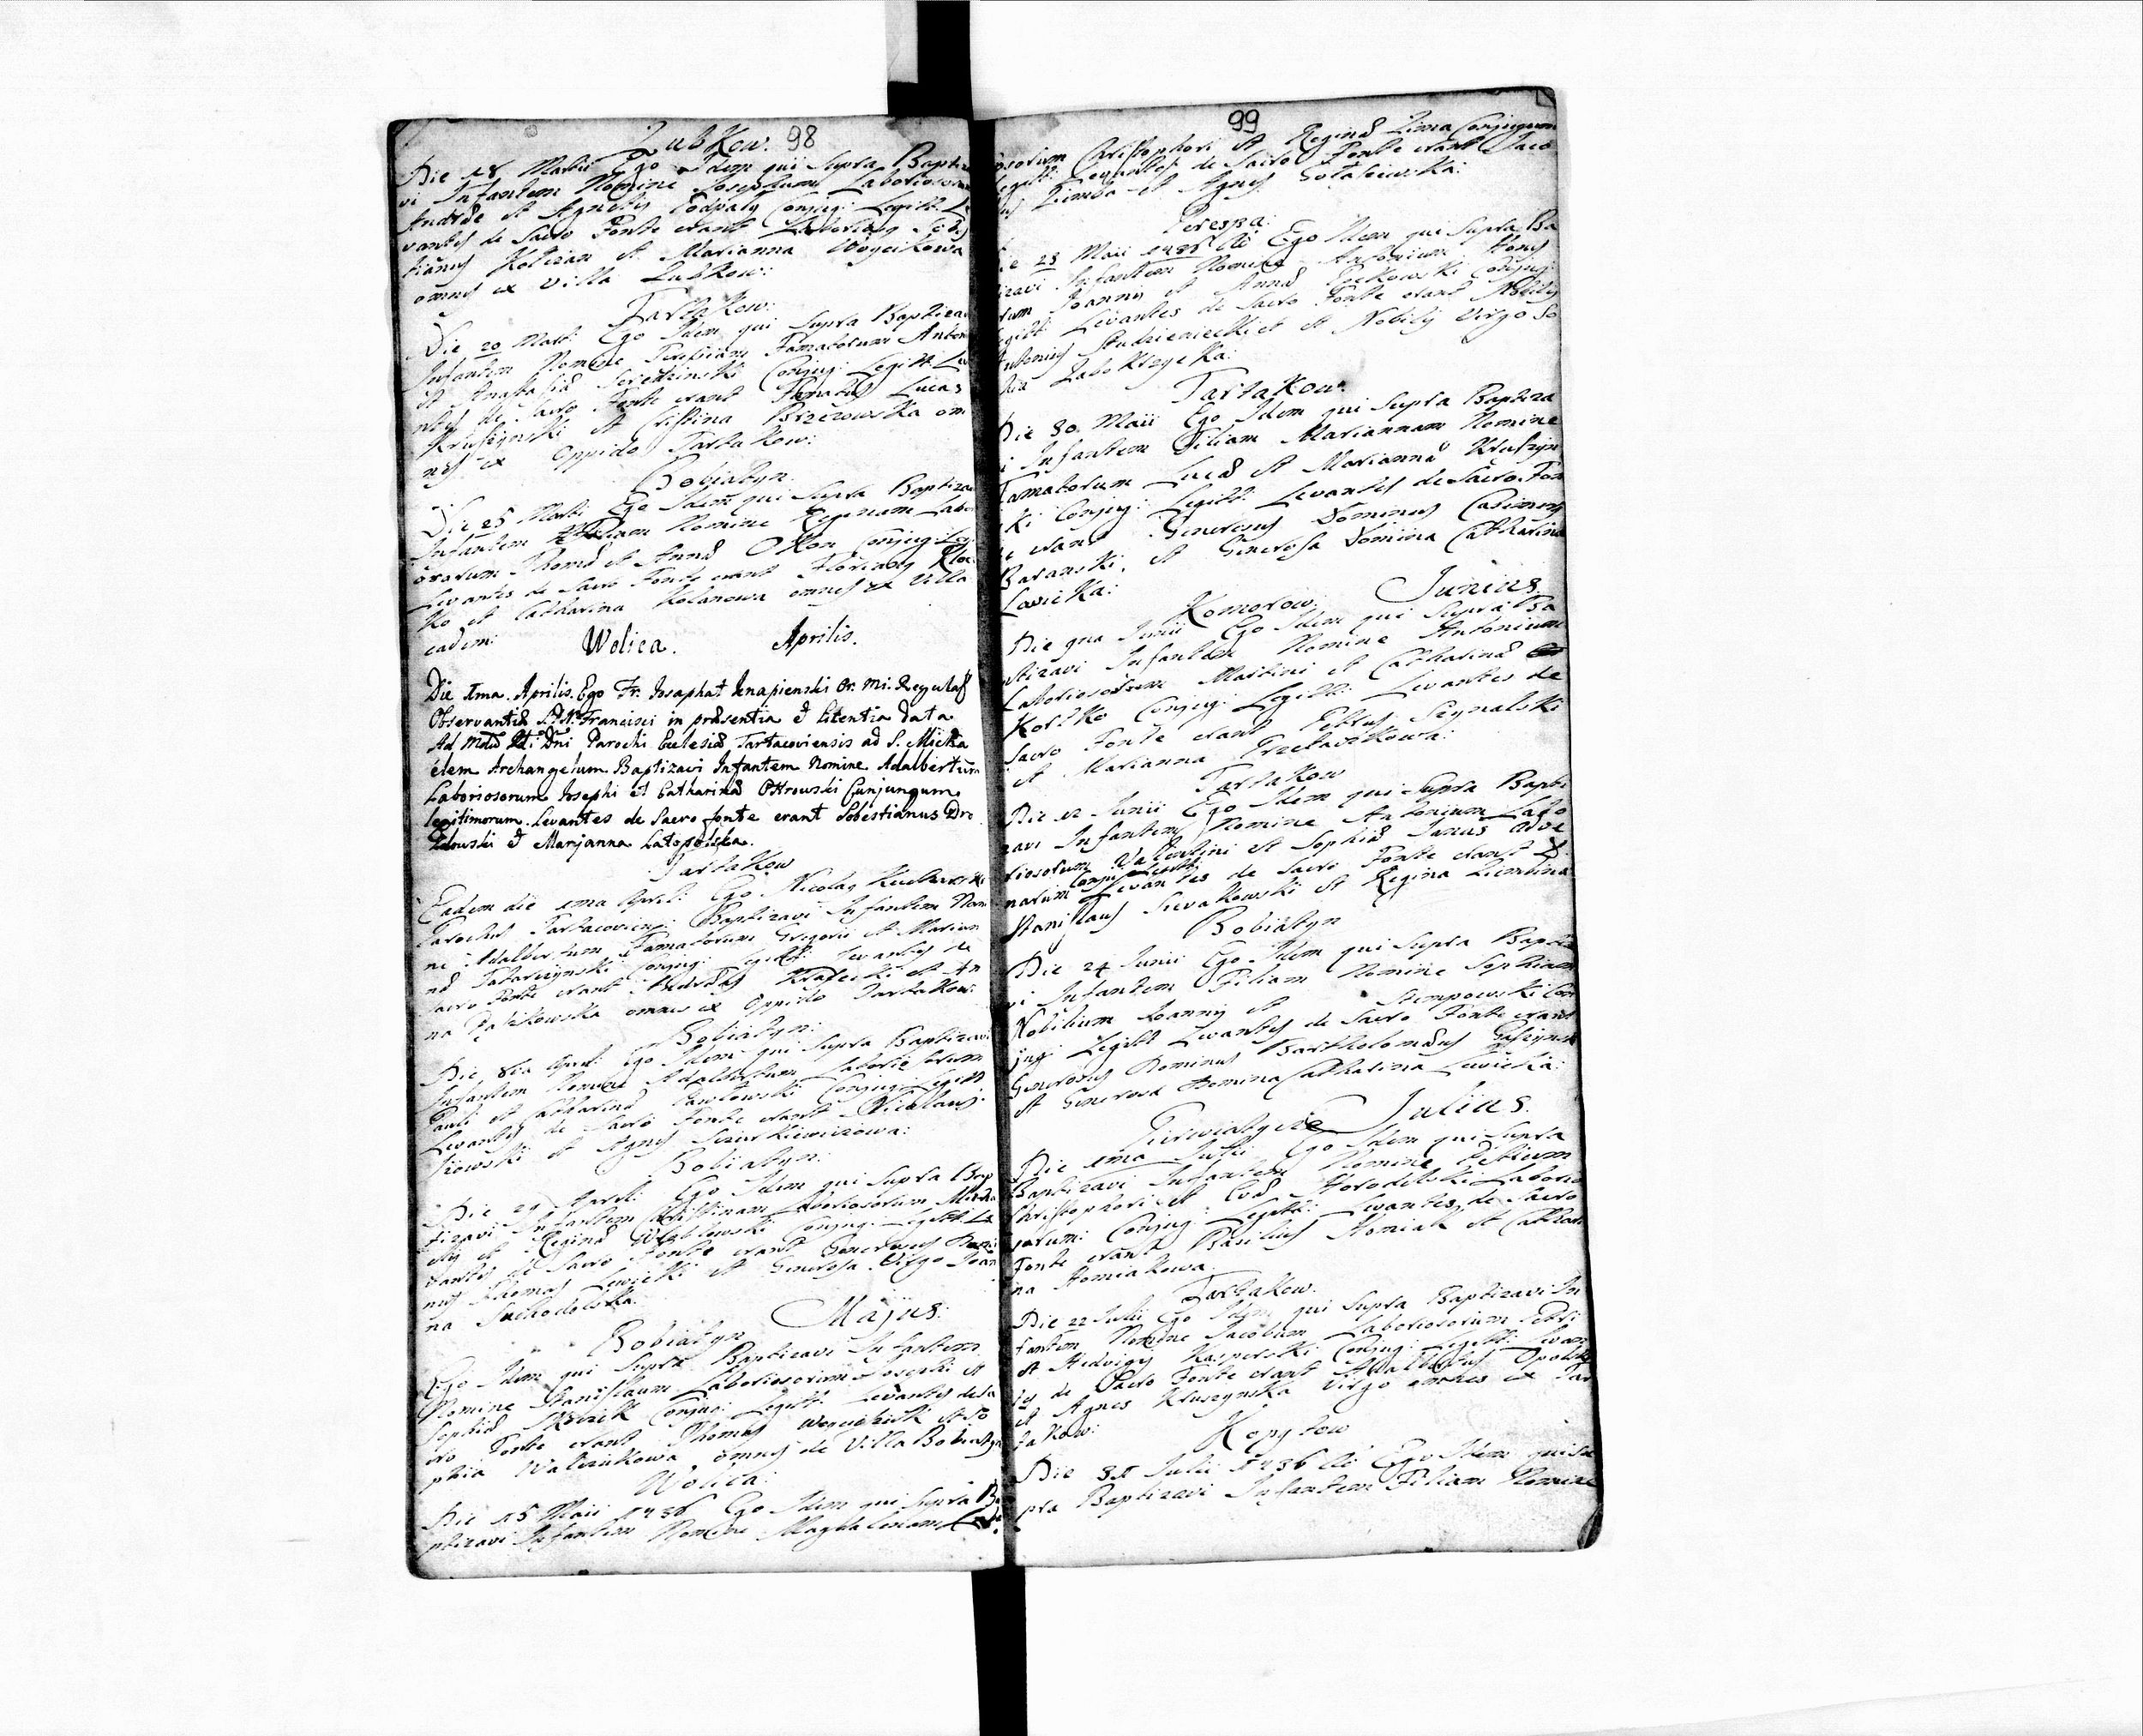 Zubkow. 98
Die 18 Martii Ego Idem qui Supra Bapti
vi Infantem Nomine Josephum Laboriosorum
Andreæ et Agnetis Conjug: Legitt: Le
vantes de Sacro Fonte erant
et Marianna Woycikowa
omnes ex Villa Zubkow:
Tartakow:
Die 20 Mart: Ego Idem qui Supra Baptizavi
Infantem Nomine Famatorum Anton
et Anastasiæ Conjug: Legitt: Le
de Sacro Fonte erant Lucas
Kruszynski et Cristina Brzezowska om
nes ex Oppido Tartakow:
Bobiatyn
Die 25 Marti Ego Idem qui Supra Baptiza
Infantem Filiam Nomine Reginam Labo
orum Thomæ et Annæ Okon Conjug: Leg
Levantes de Sacro Fonte erant Florianus
ko et Catharina Kolanowa omnes ex Villa
eadem:
Wolica. Aprilis.
Die 1ma Aprilis. Ego Fr. Josaphat Knapienski Or: Mi: Regularis
Observantiæ S.P.N. Francisci in præsentia et licentia data
Ad Mdu Rdi Dni Parochi Ecclesiæ Tartacoviensis ad S. Micha
elem Archangelum Baptizavi Infantem Nomine Adalbertum
Laboriosorum Josephi et Catharinæ Ostrowski Cunjungum
legitimorum. Levantes de Sacro fonte erant Sebestianus Dro
zdowski et Marjanna Latopolska.
Tartakow
Eadem die 1ma April: Ego Nicolaus Kucharski
Parochus Tartacovien: Baptizavi Infantem Nomi
ne Adalbertum Famatorum Gregorii et Marian
næ Conjug: Legitt: Levantes de
Sacro Fonte erant Andreas et An
na omnes ex Oppido Tartakow:
Bobiatyn:
Die 8va April: Ego Idem qui Supra Baptizavi
Infantem Nomine Adalbertum Laboriosorum
Pauli et Catharinæ Pawlowski Conjug: Legitt
Levantes de Sacro Fonte erant Nicolaus
et Agnes
Bobiatyn:
Die 29 April: Ego Idem qui Supra Bap
tizavi Infantem Cristinam Laboriosorum Micha
elis et Reginæ Conjug: Legitt: Le
vantes de Sacro Fonte erant Generosus Domi
nus Thomas Lewicki et Generosa Virgo Joan
na Suchodolska:
Majus:
Bobiatyn
Ego Idem qui Supra Baptizavi Infantem
Nomine Stanislaum Laboriosorum Josephi et
Sophiæ Conjug: Legitt: Levantes de Sa
cro Fonte erant Thomas et So
phia Walczukowa omnes de Villa Bobiatyn
Wolica:
Die 15 Maii 1736 Ego Idem qui Supra Ba
ptizavi Infantem Nomine Magdalenam Labo
99
osorum Christophori et Reginæ Zima Conjugum
Legitt: Levantes de Sacro Fonte erant Jaco
bus Ziemba et Agnes
Perespa:
Die 23 Maii Ego Idem qui Supra Ba
tizavi Infantem Nomine Antonium Hones
rum Joannis et Annæ Conjug:
Legitt: Levantes de Sacro Fonte erant Nobilis
Antonius et Nobilis Virgo So
phia
Tartakow
Die 30 Maii Ego Idem qui Supra Baptiza
vi Infantem Filiam Mariannam Nomine
Famatorum Lucæ et Mariannæ Kruszyn
ski Conjug: Legitt: Levantes de Sacro Fon
te erant Generosus Dominus Casimirus
Baranski, et Generosa Domina Catharina
Lewicka:
Komorow: Junius
Die 9na Junii Ego Idem qui Supra Ba
ptizavi Infantem Nomine Antonium
Laboriosorum Martini et Catharinæ
Conjug: Legitt: Levantes de
Sacro Fonte erant Petrus
et Marianna
Tartakow
Die 12 Junii Ego Idem qui Supra Bapti
zavi Infantem Nomine Antonium Labo
riosorum Valentini et Sophiæ Janus Adve
narum Conjug Legitt Levantes de Sacro Fonte erant
Stanislaus et Regina Ziembina
Bobiatyn
Die 24 Junii Ego Idem qui Supra Baptiza
vi Infantem Filiam Nomine Sophiam
Nobilium Joannis et Stempowski Con
jug: Legitt Levantes de Sacro Fonte erant
Generosus Dominus Bartholomæus
et Generosa Domina Catharina Lewicka:
Julius.
Die 1ma Julii Ego Idem qui Supra
Baptizavi Infantem Nomine Petrum
Christophori et Evæ Horodelski Laborio
sorum: Conjug: Legitt: Levantes de Sacro
Fonte erant Basilius Homiak et Cathari
na Homiakowa
Tartakow.
Die 22 Julii Ego Idem qui Supra Baptizavi In
fantem Nomine Jacobum Laboriosorum Petri
et Hedvigis Kasperski Conjug: Legitt: Levan
tes de Sacro Fonte erant Adalbertus Opalski
et Agnes Kruszynska Virgo omnes ex Tar
takow:
Kopytow
Die 31 Julii 1736 Ao Ego Idem qui Su
pra Baptizavi Infantem Filiam Nomine